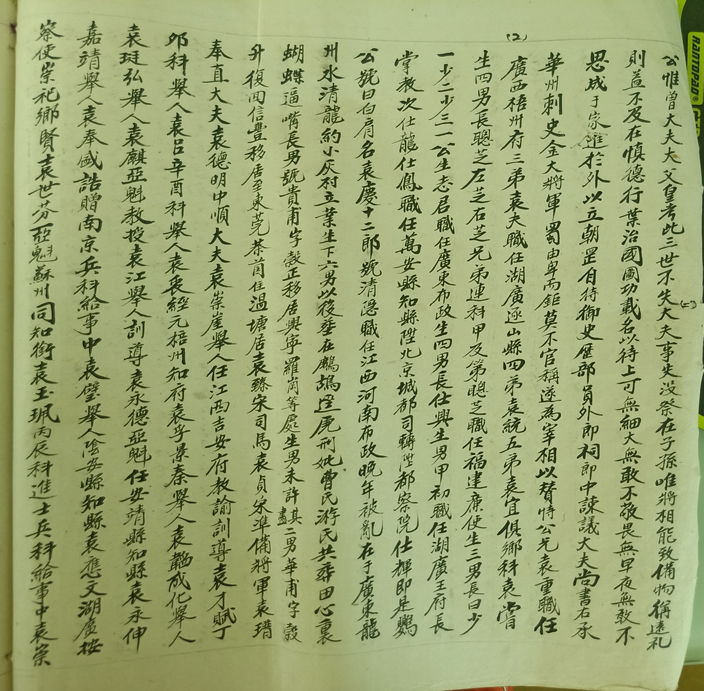 (2)
公惟曾大夫大父皇考此三世不失大夫事失没祭在子孫唯將相能致備物稱遠礼
則益不及在慎德行業治國國功載名以待上可無細大無敢不敬畏無早夜無敢不
思成于家進於外以立朝罡自持御史歷部員外郎祠郎中諫議大夫尚書右承
華州刺史金大將軍蜀由卑而鉅莫不官稱遂為宰相以賛特公兄袁重職任
廣西梧州府三弟袁夫職任湖廣逐山縣四弟袁統五弟袁宜俱鄉科袁嘗
生四男長聰芝左芝右芝兄弟連科甲及第聰芝職任福建廉使生三男長曰少
一少二少三一公生志君職任廣東布政生四男長仕興生男甲初職任湖廣王府長
掌教次仕龍仕鳳職任萬安縣知縣陞北京城都司轉陞都察院仕輝即是鸚
公號曰白眉名袁慶十二郎號清隱職任江西河南布政晚年被亂在于廣東龍
州水清龍約小灰村立業生下六男以後塟在鷓鴣逕虎形妣曹氏游氏共塟田心裏
蝴蝶逼嘴長男號貴甫字毅正移居興寧羅崗等處生男未許譜二男華甫字毅
升復回信豐移居至東莞茶茴住温塘居袁臻宋司馬袁貞宋準備將軍袁瑨
奉直大夫袁德明中順大夫袁崇崖舉人任江西吉安府教諭訓導袁才賦丁
卯科舉人袁吕辛酉科舉人袁衷經元梧州知府袁孚景泰舉人袁韜成化舉人
袁珽弘舉人袁麒亞魁教授袁江舉人訓導袁永德亞魁任安靖縣知縣袁永伸
嘉靖舉人袁奉盛誥贈南京兵科給事中袁璧舉人陰安縣知縣袁應文湖廣按
察使崇祀鄉賢袁世芬亞魁蘇州同知銜袁玉珮丙辰科進士兵科給事中袁崇
RANTOPAD